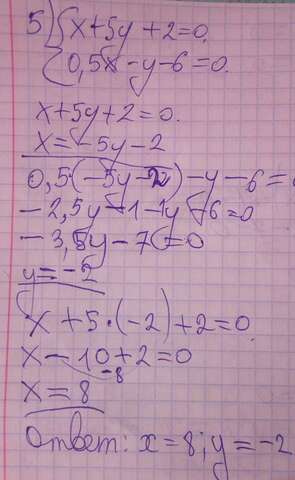 5) { x+5y+2=0.
0,5x-y-6=0.
x+5y+2=0.
x=-5y-2
0,5·(-5y-2)-y-6=0
-2,5y-1-1y-6=0
-3,5y-7=0
y=-2
x+5·(-2)+2=0
x-10+2=0
-8
x=8
Ответ: x=8; y=-2